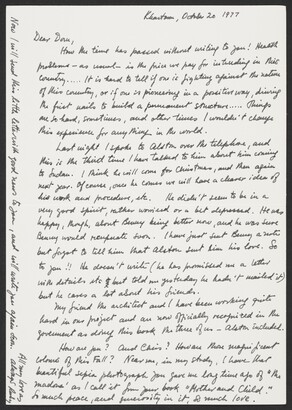 Khartoum, October 20 1977
Dear Dow,
How the time has passed without writing to you! Health
problems – as usual – is the price we pay for intruding in this
country..... It is hard to tell if one is fighting against the nature
of this country, or if one is pioneering in a positive way, driving
the first nails to build a permanent structure..... Things
are so hard, sometimes, and other times I wouldn't change
this experience for anything in the world.
Last night I spoke to Alston over the telephone, and
this is the third time I have talked to him about him coming
to Sudan. I think he will come for Christmas, and then again
next year. Of course, once he comes we will have a clearer idea of
his work and procedure, etc. He didn't seem to be in a
very good spirit, rather worried or a bit depressed. He was
happy, though, about Benny being better now, and he was sure
Benny would recuperate soon. I have just sent Benny a note
but forgot to tell him that Alston sent him his love. So
to you!! He doesn't write (he has promised me a letter
with details etc. & but told me yesterday he hadn't mailed it)
but he cares a lot about his friends.
My friend the architect and I have been working quite
hard in our project and are now officially recognized in the
government as doing this book the three of us – Alston included.
How are you? And Cairo? How are those magnificent
colours of this Fall? Near me, in my study, I have that
beautiful sepia photograph you gave me long time ago of "the
madona" as I call it from your book "Mother and Child".
So much peace, and generosity in it, so much love.
Now I will send this little letter with good news to you, and will write you again soon.
All my love
always